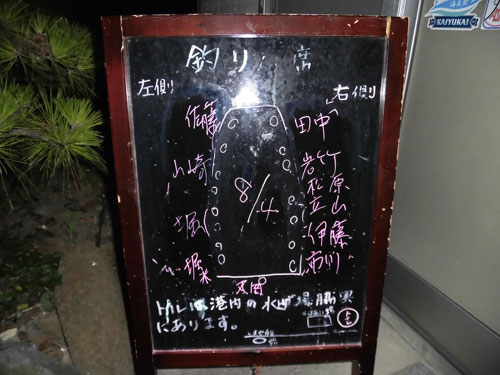 釣り席
左側
右側
佐藤
田中
山崎
岩竹
松原
立山
堀
伊藤
市川
8/4
トイレは港内の水げ場脇奥
にあります。
KAIYUKAI